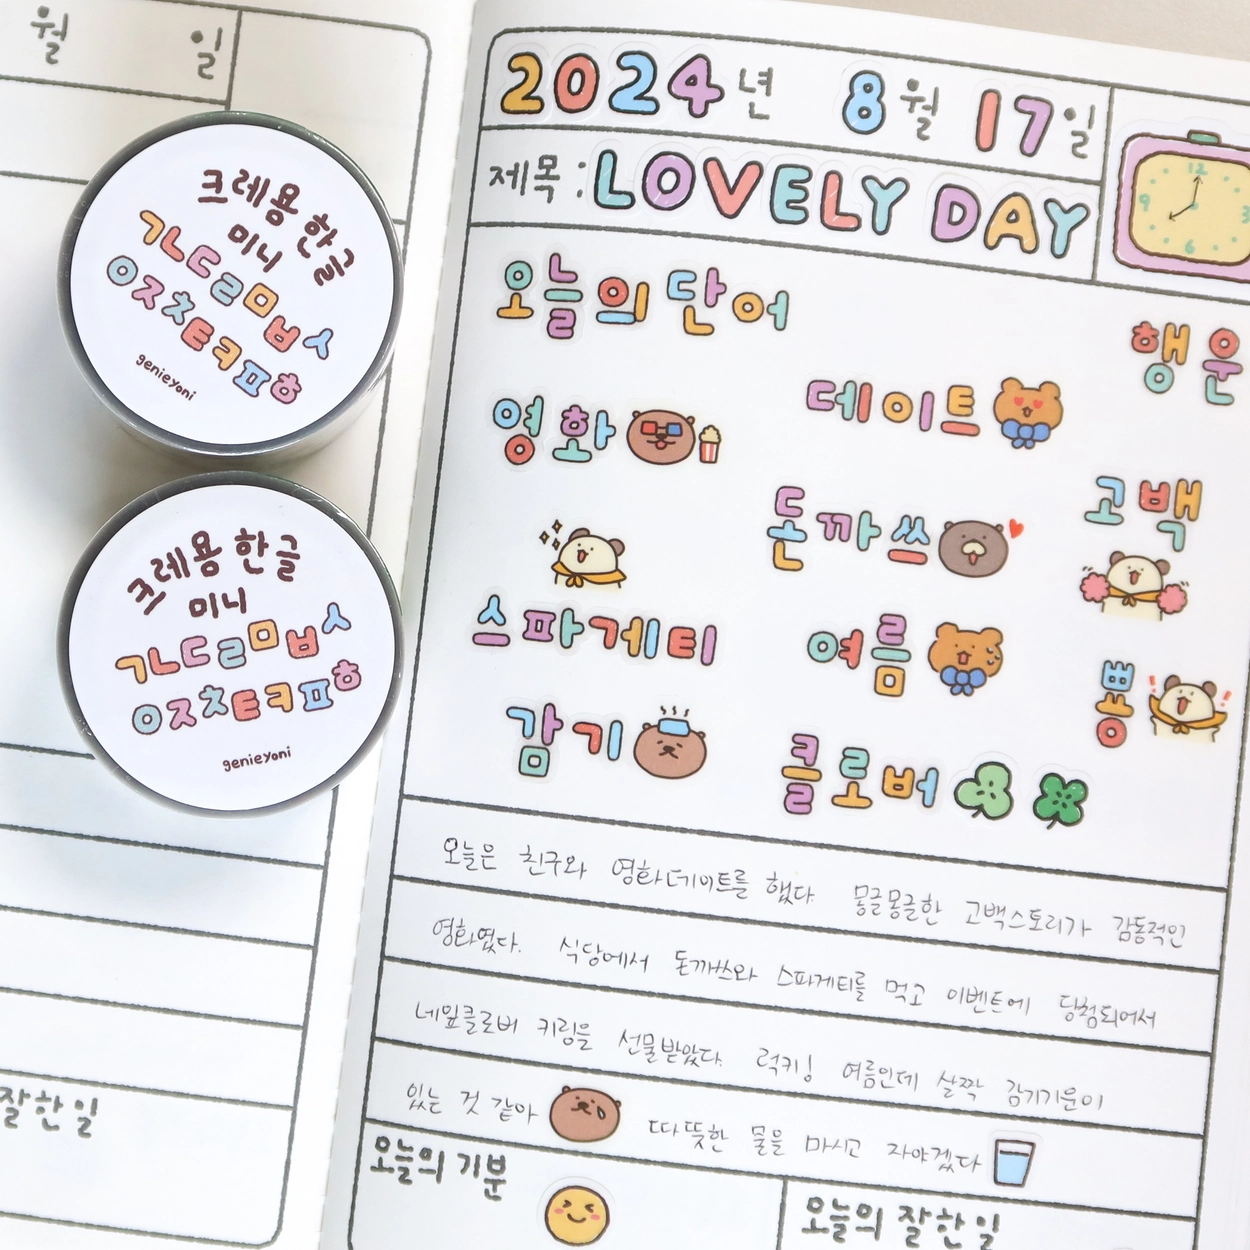 월 일
크레용 한글
미니
ㄱㄴㄷㄹㅁㅂㅅ
ㅇㅈㅊㅌㅋㅍㅎ
genieyoni
크레용 한글
미니
ㄱㄴㄷㄹㅁㅂㅅ
ㅇㅈㅊㅌㅋㅍㅎ
genieyoni
잘한일
2024년 8월 17일
제목: LOVELY DAY
12
3
6
9
오늘의 단어
행운
데이트
영화
고백
돈까쓰
스파게티
여름
뿅
감기
클로버
오늘은 친구와 영화데이트를 했다. 몽글몽글한 고백스토리가 감동적인
영화였다. 식당에서 돈까쓰와 스파게티를 먹고 이벤트에 당첨되어서
네잎클로버 키링을 선물받았다. 럭키! 여름인데 살짝 감기기운이
있는 것 같아 따뜻한 물을 마시고 자야겠다
오늘의 기분
오늘의 잘한일